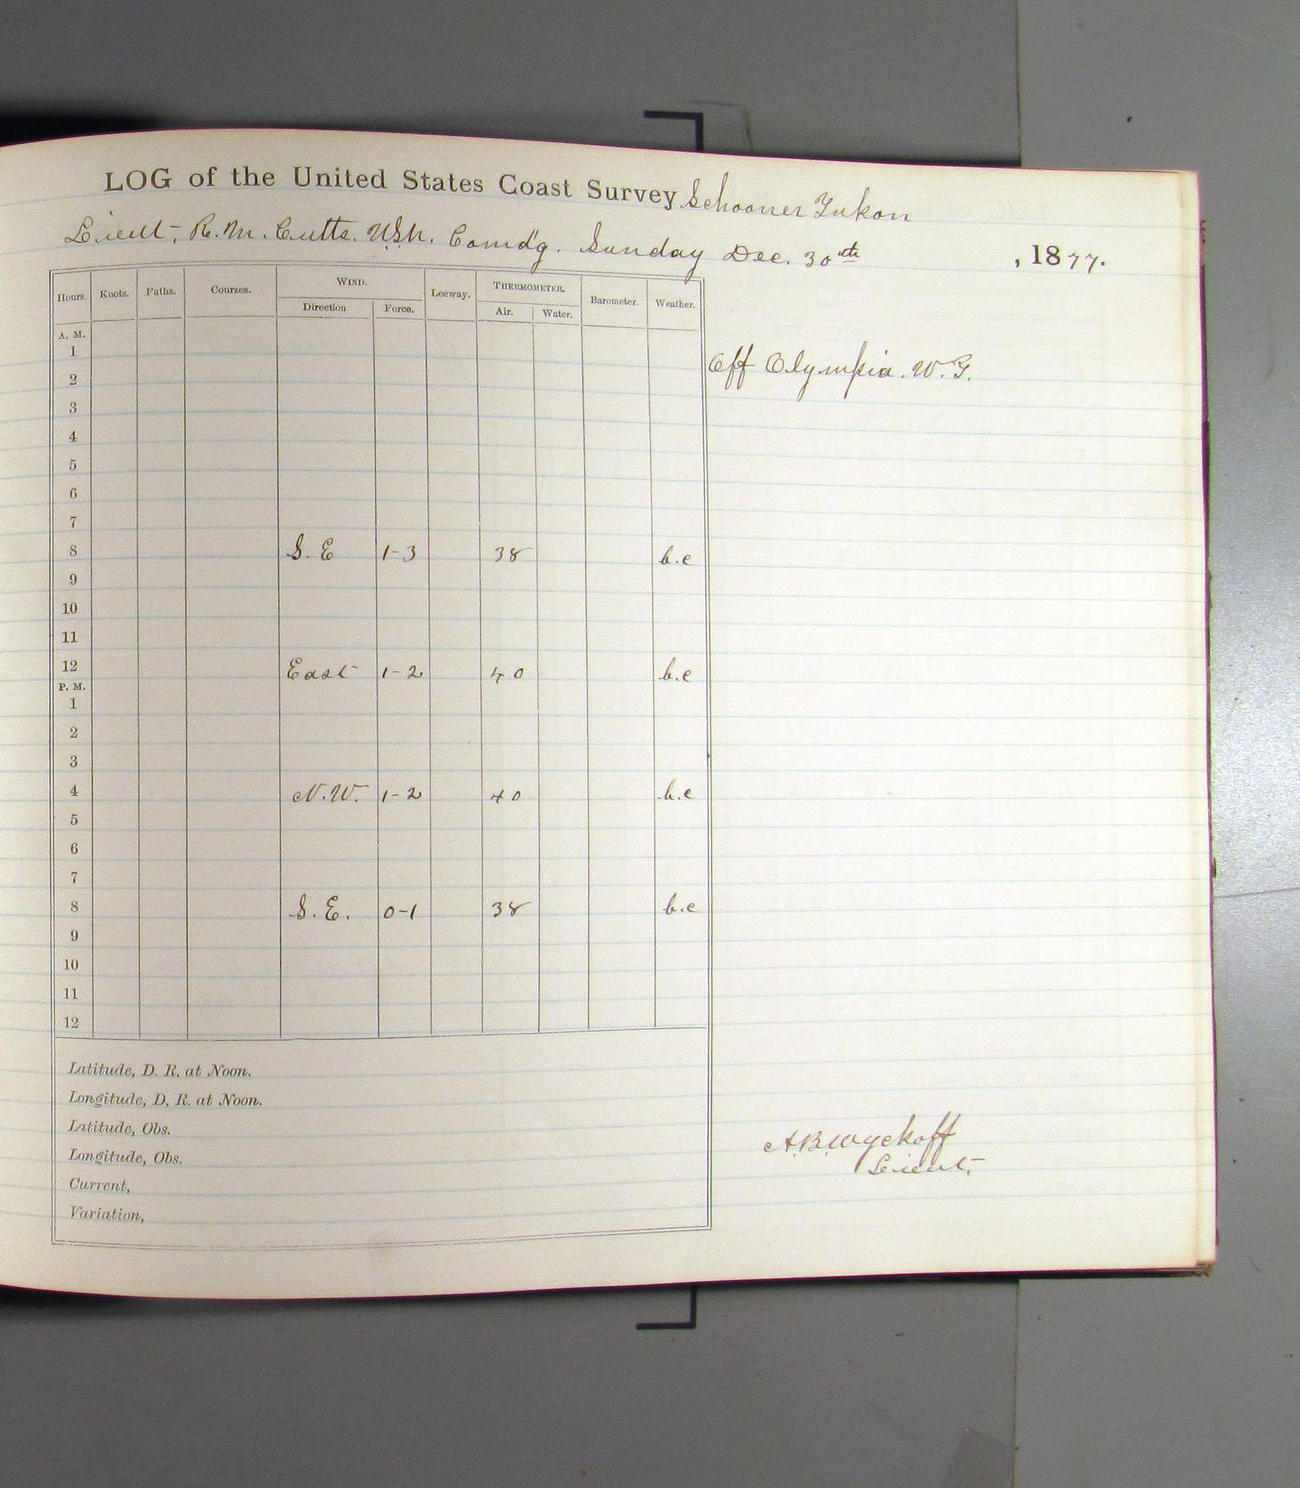 LOG of the United States Coast Survey Schooner Yukon
Lieut, R. M. Cutts. U.S.N. Comd'g. Sunday Dec. 30th, 1877.
Hours. Knots. Faths. Courses. WIND. Leeway. THERMOMETER. Barometer. Weather.
Direction Force. Air. Water.
A. M.
1
Off Olympia. W.T.
2
3
4
5
6
7
8 S. E 1-3 38 b.c
9
10
11
12 East 1-2 40 b.c
P. M.
1
2
3
4 N.W. 1-2 40 b.c
5
6
7
8 S.E. 0-1 38 b.c
9
10
11
12
Latitude, D. R. at Noon.
Longitude, D. R. at Noon.
Latitude, Obs.
Longitude, Obs.
Current,
Variation,
A.B. Wyckoff
Lieut,